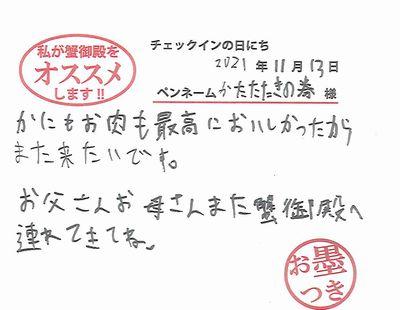 私が蟹御殿を
オススメ
します!!
チェックインの日にち
2021年11月13日
ペンネームかたたたきの券様
かにもお肉も最高においしかったから
また来たいです。
お父さんお母さんまた蟹御殿へ
連れてきてね。
お墨
つき